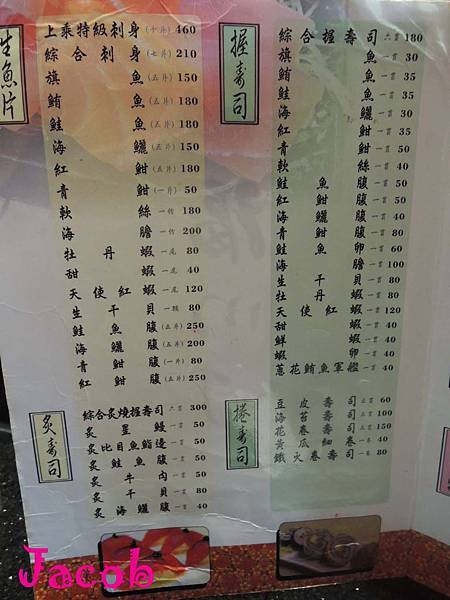 生魚片
上乘特級刺身(十片) 460
綜合刺身(七片) 210
旗魚(五片) 150
鮪魚(五片) 180
鮭魚(五片) 180
海鱺(五片) 150
紅魽(五片) 180
青魽(一片) 50
軟絲一份 180
海膽一份 200
牡丹蝦一尾 80
甜蝦一尾 40
天使紅蝦一尾 120
生干貝一顆 80
鮭魚腹(五片) 250
海鱺腹(五片) 200
青魽腹(一片) 80
紅魽腹(五片) 250
炙壽司
綜合炙燒握壽司六貫 300
炙星鰻一貫 50
炙比目魚鰭邊一貫 50
炙鮭魚腹一貫 50
炙牛肉一貫 50
炙干貝一貫 80
炙海鱺腹一貫 40
握壽司
綜合握壽司六貫 180
旗魚一貫 30
鮪魚一貫 35
鮭魚一貫 35
海鱺一貫 30
紅魽一貫 35
青魽一貫 50
軟絲一貫 40
鮭魚腹一貫 50
紅魽腹一貫 50
海鱺腹一貫 40
青魽腹一貫 80
鮭魚卵一貫 60
海膽一貫 100
生干貝一貫 80
牡丹蝦一貫 80
天使紅蝦一貫 120
甜蝦一貫 40
鮮蝦一貫 40
蝦卵一貫 40
蔥花鮪魚軍艦一貫 40
捲壽司
豆皮壽司 60
海苔壽司 100
花壽司 150
黃瓜細卷 40
鐵火卷壽司 80
Jacob